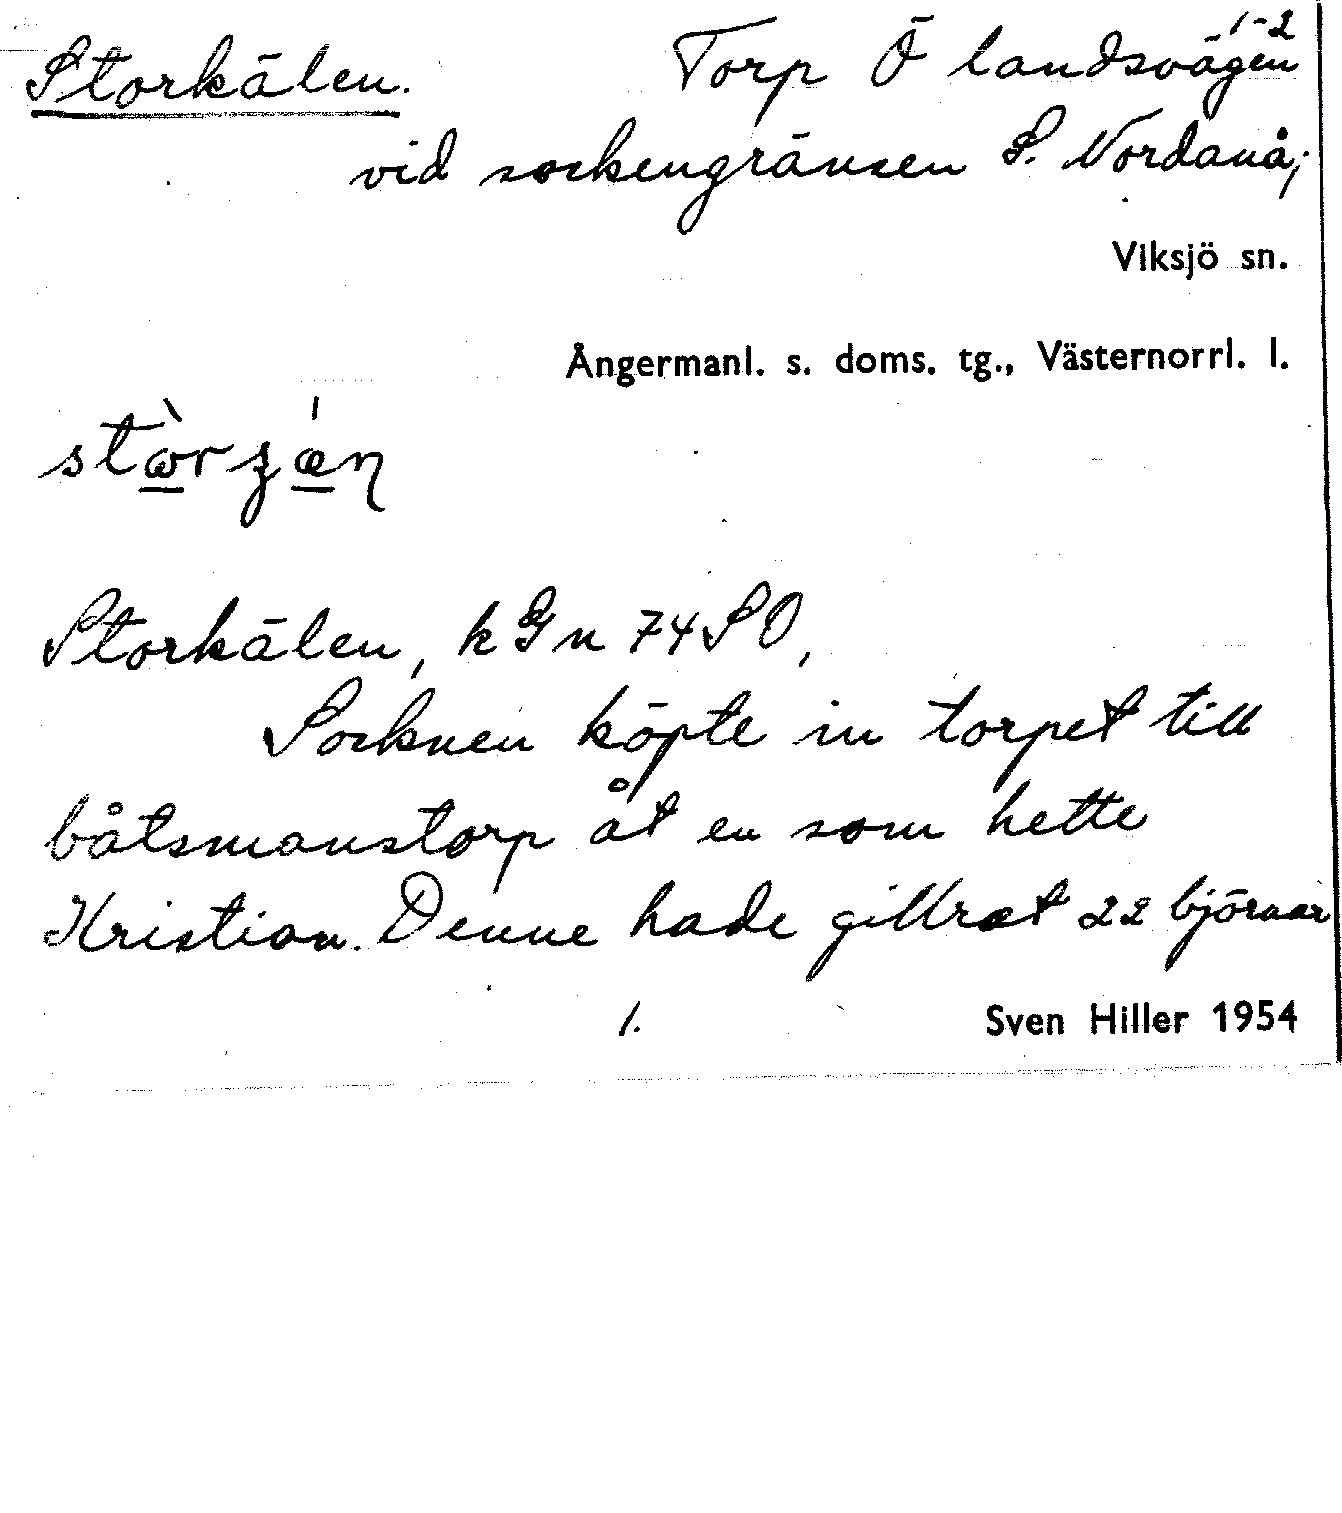 1-2
Storkälen. Torp Ö landsvägen
vid sockengränsen S. Nordanå;
Viksjö sn.
Ångermanl. s. doms. tg., Västernorrl. l.
Storkälen, k Gn 74 SO,
Socknen köpte in torpet till
båtsmanstorp åt en som hette
Kristian. Denne hade gillrat 22 björnar
1. Sven Hiller 1954